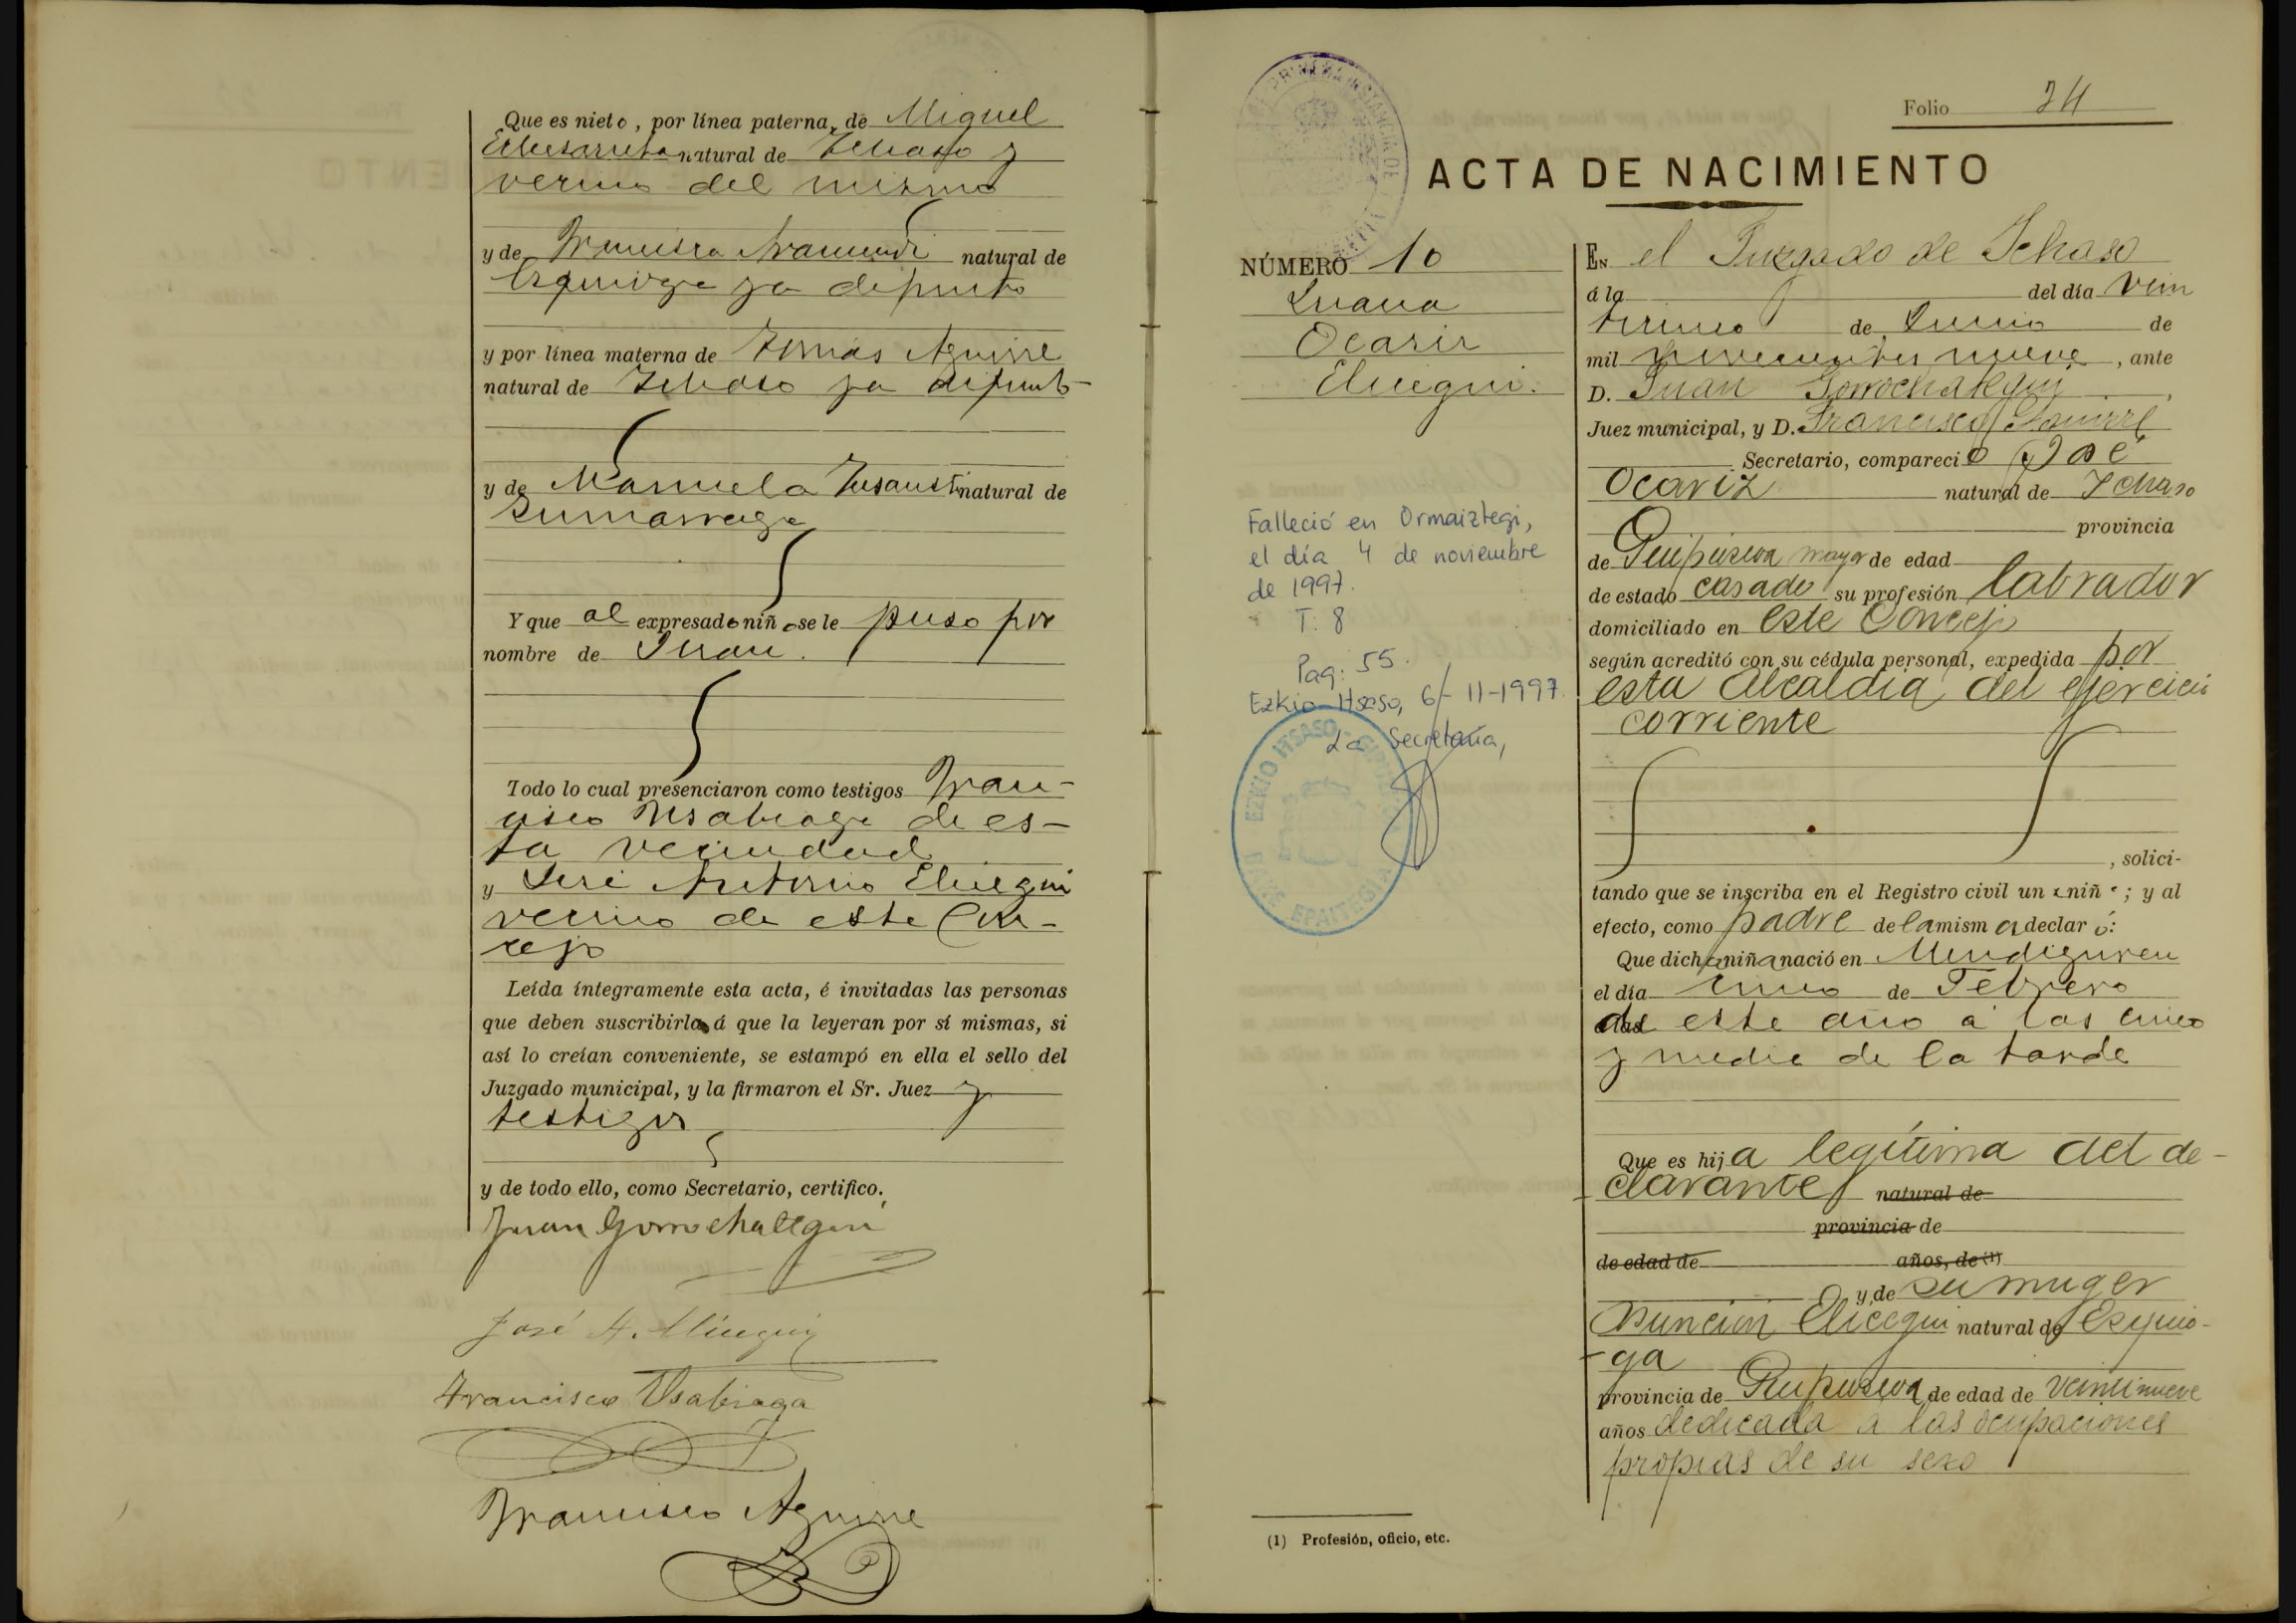 Que es nieto, por línea paterna, de Miguel
natural de Ichaso y
vecino del mismo
y de Francisca Aramendi natural de
Ezquioga ya difunta
y por línea materna de Tomás Aguirre
natural de Ichaso ya difunto
y de Manuela natural de
Zumarraga
Y que al expresado niño se le puso por
nombre de Juan.
Todo lo cual presenciaron como testigos Fran-
cisco Usabiaga de es-
ta vecindad
y José Antonio Elicegui
vecino de este Con-
cejo
Leída íntegramente esta acta, é invitadas las personas
que deben suscribirla á que la leyeran por sí mismas, si
así lo creían conveniente, se estampó en ella el sello del
Juzgado municipal, y la firmaron el Sr. Juez y
testigos
y de todo ello, como Secretario, certifico.
Juan Gorrochategui
José A. Elicegui
Francisco Usabiaga
Francisco Aguirre
Folio 24
ACTA DE NACIMIENTO
NÚMERO 10
Juana
Ocariz
Elicegui.
Falleció en Ormaiztegi,
el día 4 de noviembre
de 1997.
T. 8
Pag: 55.
Ezkio-Itsaso, 6-11-1997.
La Secretaria,
EZKIO ITSASO - GIPUZKOA
BAKE EPAITEGIA
EN el Juzgado de Ichaso
á la del día vein
ticinco de Junio de
mil novecientos nueve, ante
D. Juan Gorrochategui,
Juez municipal, y D. Francisco Aguirre
Secretario, compareció José
Ocariz natural de Ichaso
provincia
de Guipuzcoa mayor de edad
de estado casado su profesión labrador
domiciliado en este Concejo
según acreditó con su cédula personal, expedida por
esta Alcaldía del ejercicio
corriente
, solici-
tando que se inscriba en el Registro civil un niñ ; y al
efecto, como padre de la misma declaró:
Que dicha niña nació en Mendiguren
el día cinco de Febrero
de este año a las cinco
y media de la tarde
Que es hija legítima del de-
clarante natural de
provincia de
de edad de años, de (1)
y de su muger
Asunción Elicegui natural de Ezquio-
ga
provincia de Guipuzcoa de edad de veintinueve
años dedicada a las ocupaciones
propias de su sexo
(1) Profesión, oficio, etc.